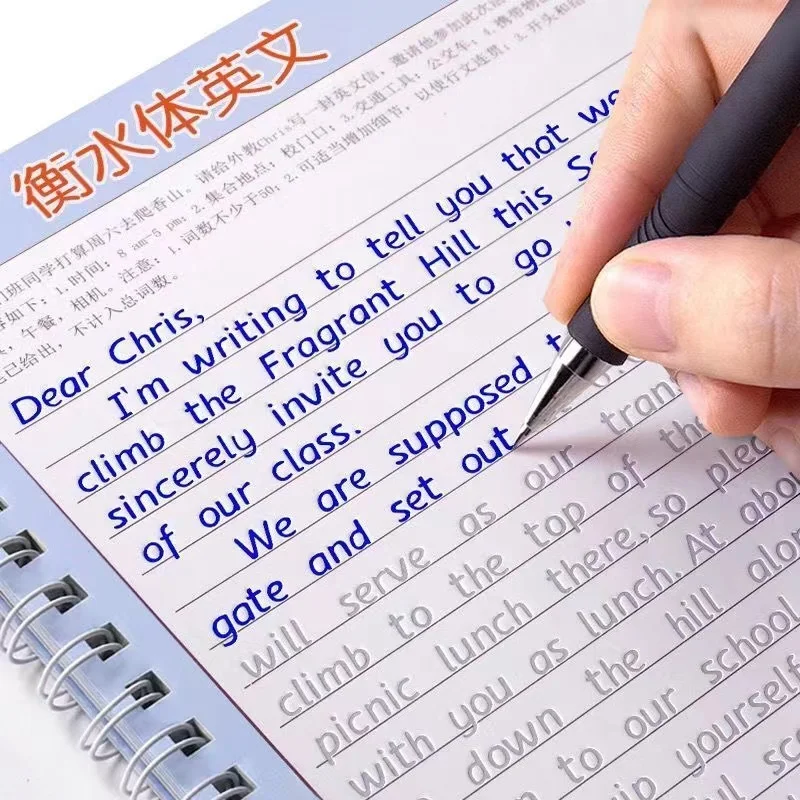 衡水体英文
班同学打算周六去爬香山。请给外教Chris写一封英文信，邀请他参加此次活
如下：1.时间：8 am-5 pm；2.集合地点：校门口；3.交通工具：公交车；4.携带物
，午餐，相机。注意：1.词数不少于50；2.可适当增加细节，以使行文连贯；3.开头和结
已给出，不计入总词数。
Dear Chris,
I'm writing to tell you that we
climb the Fragrant Hill this
sincerely invite you to go
of our class.
We are supposed
gate and set out
will serve as our
climb to the top of the
picnic lunch there, so
with you as lunch. At
down the hill
to our school
yourself